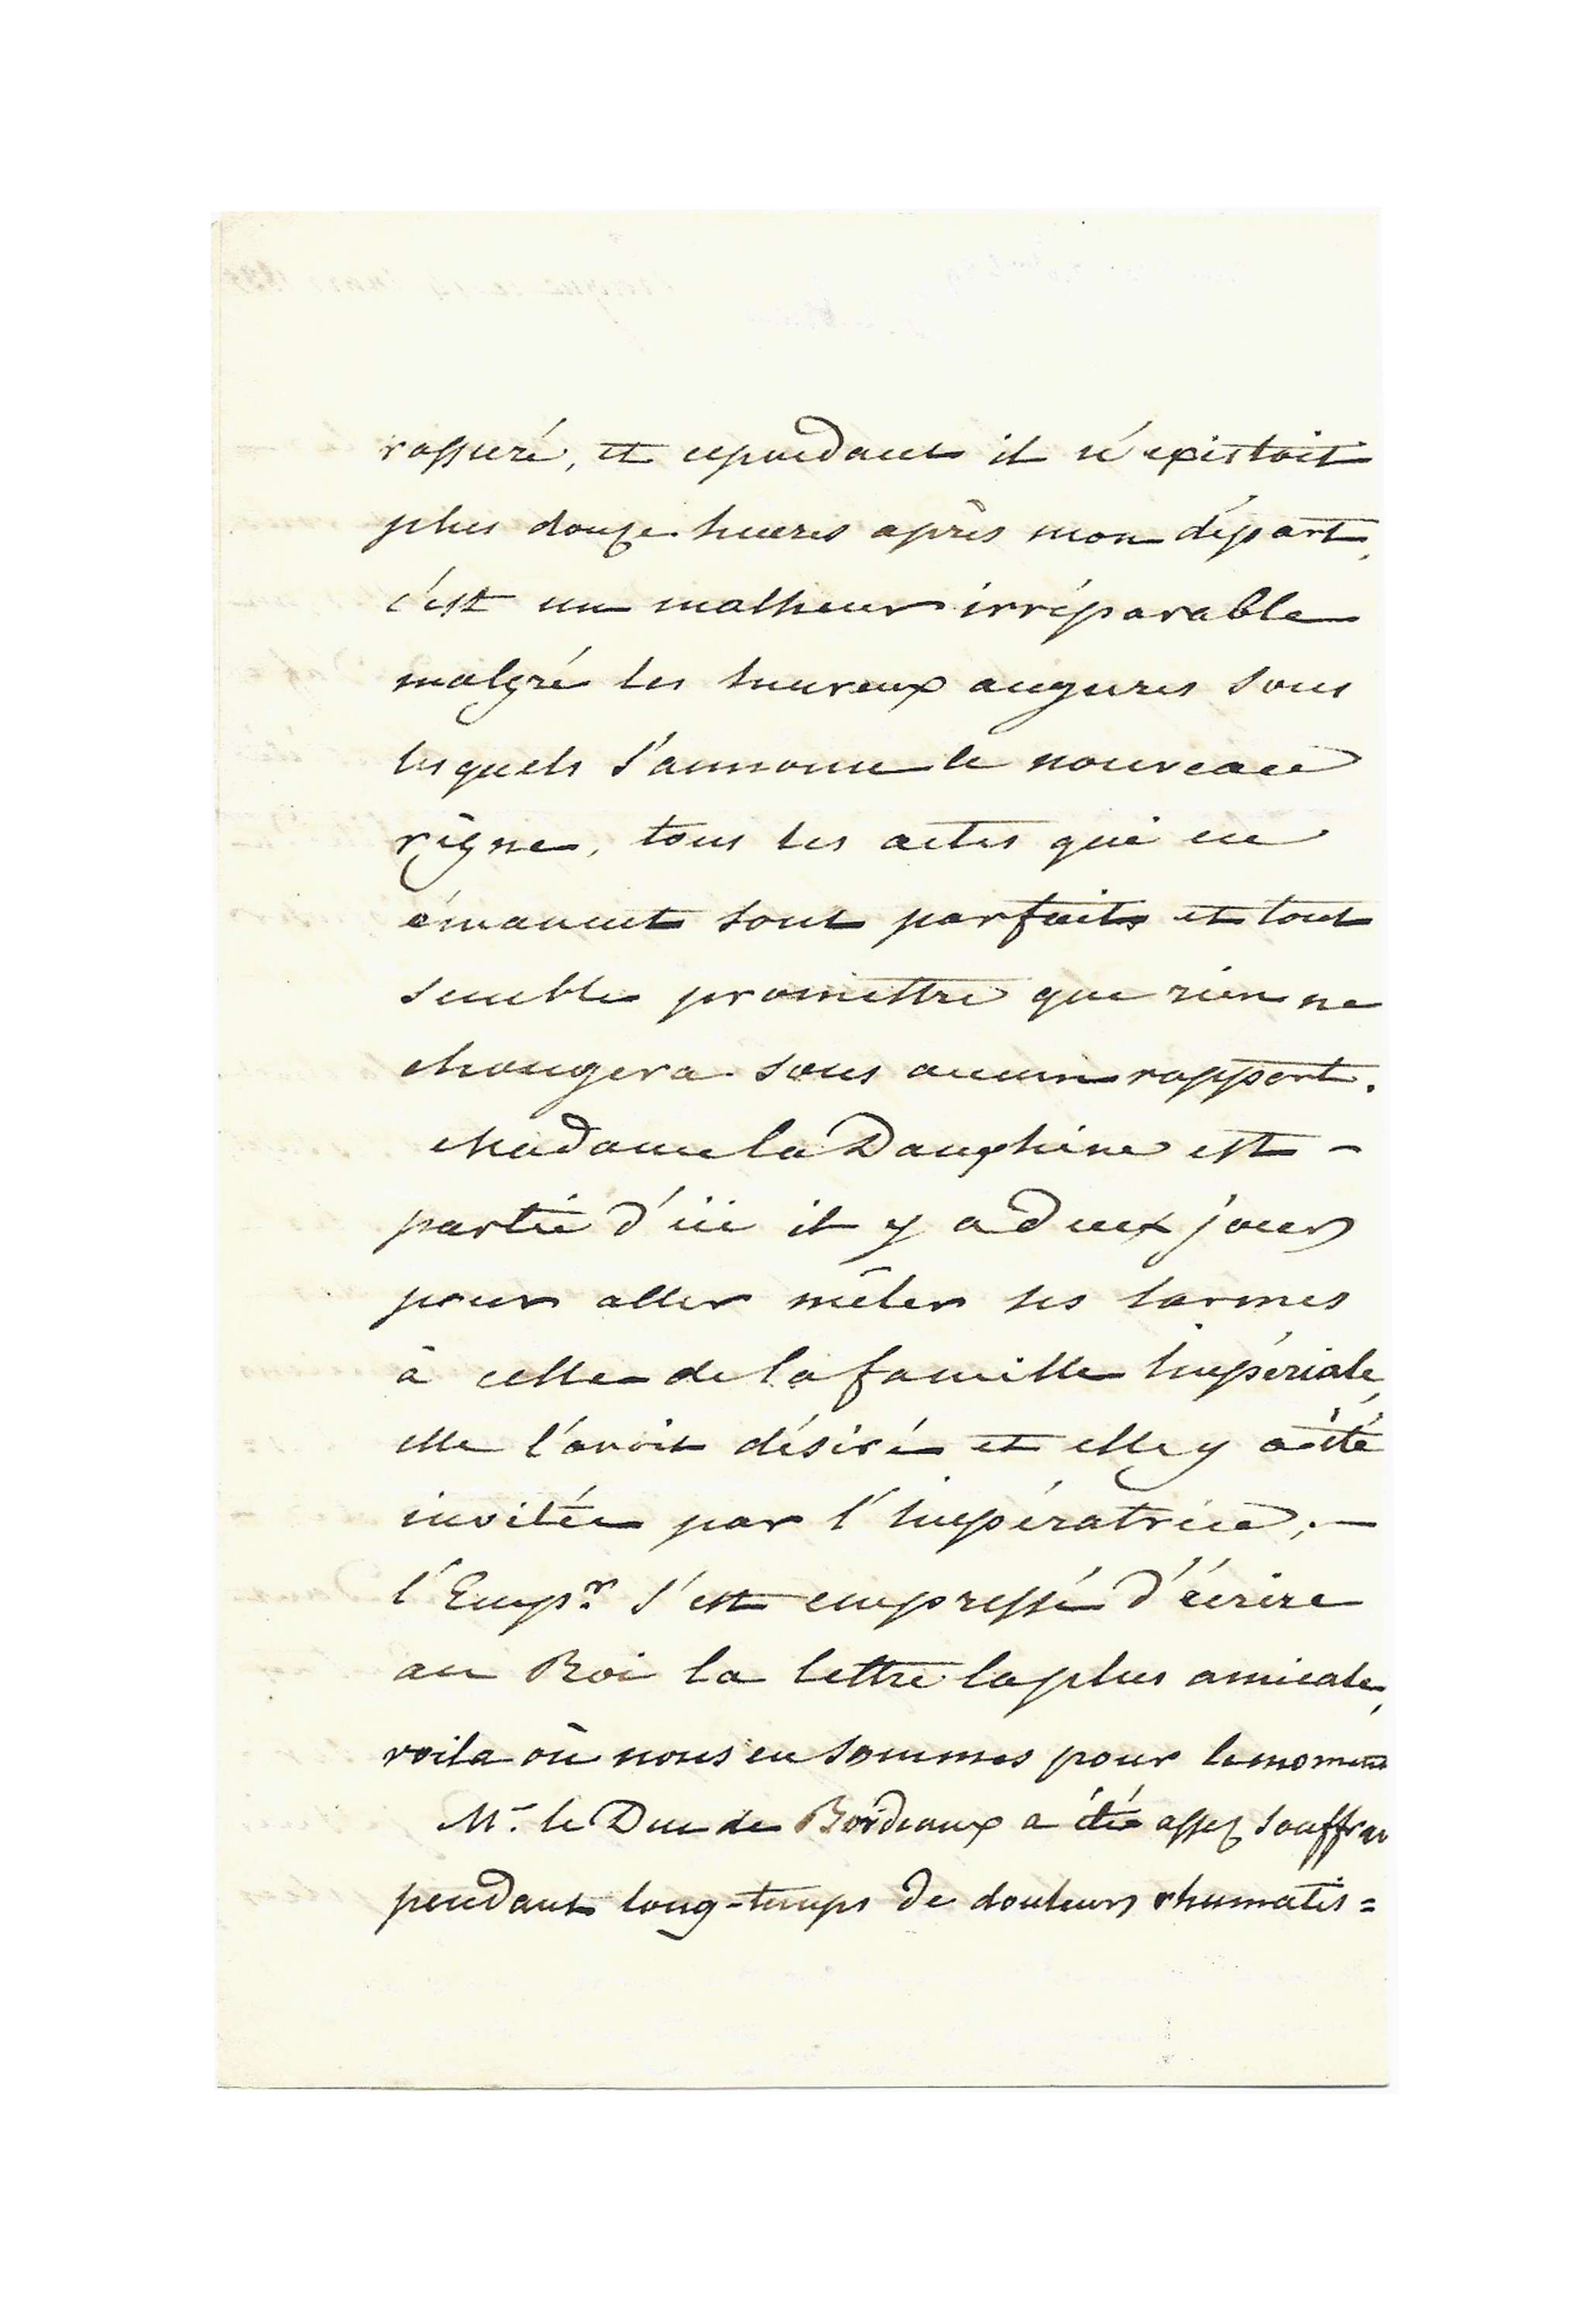 rassuré, et cependant il n'existoit
plus douze heures après mon départ,
c'est un malheur irréparable
malgré les heureux augures sous
lesquels s'annonce le nouveau
règne, tous les actes qui en
émanent sont parfaits et tout
semble promettre que rien ne
changera sous aucun rapport.
Madame la Dauphine est -
partie d'ici il y a deux jours
pour aller mêler ses larmes
à celle de la famille Impériale,
elle l'avoit désiré et elle y a été
invitée par l'Impératrice; -
l'Emp.r s'est empressé d'écrire
au Roi la lettre la plus amicale,
voila où nous en sommes pour le moment
M.r le Duc de Bordeaux a été assez souffran
pendant long-temps de douleurs rhumatis=